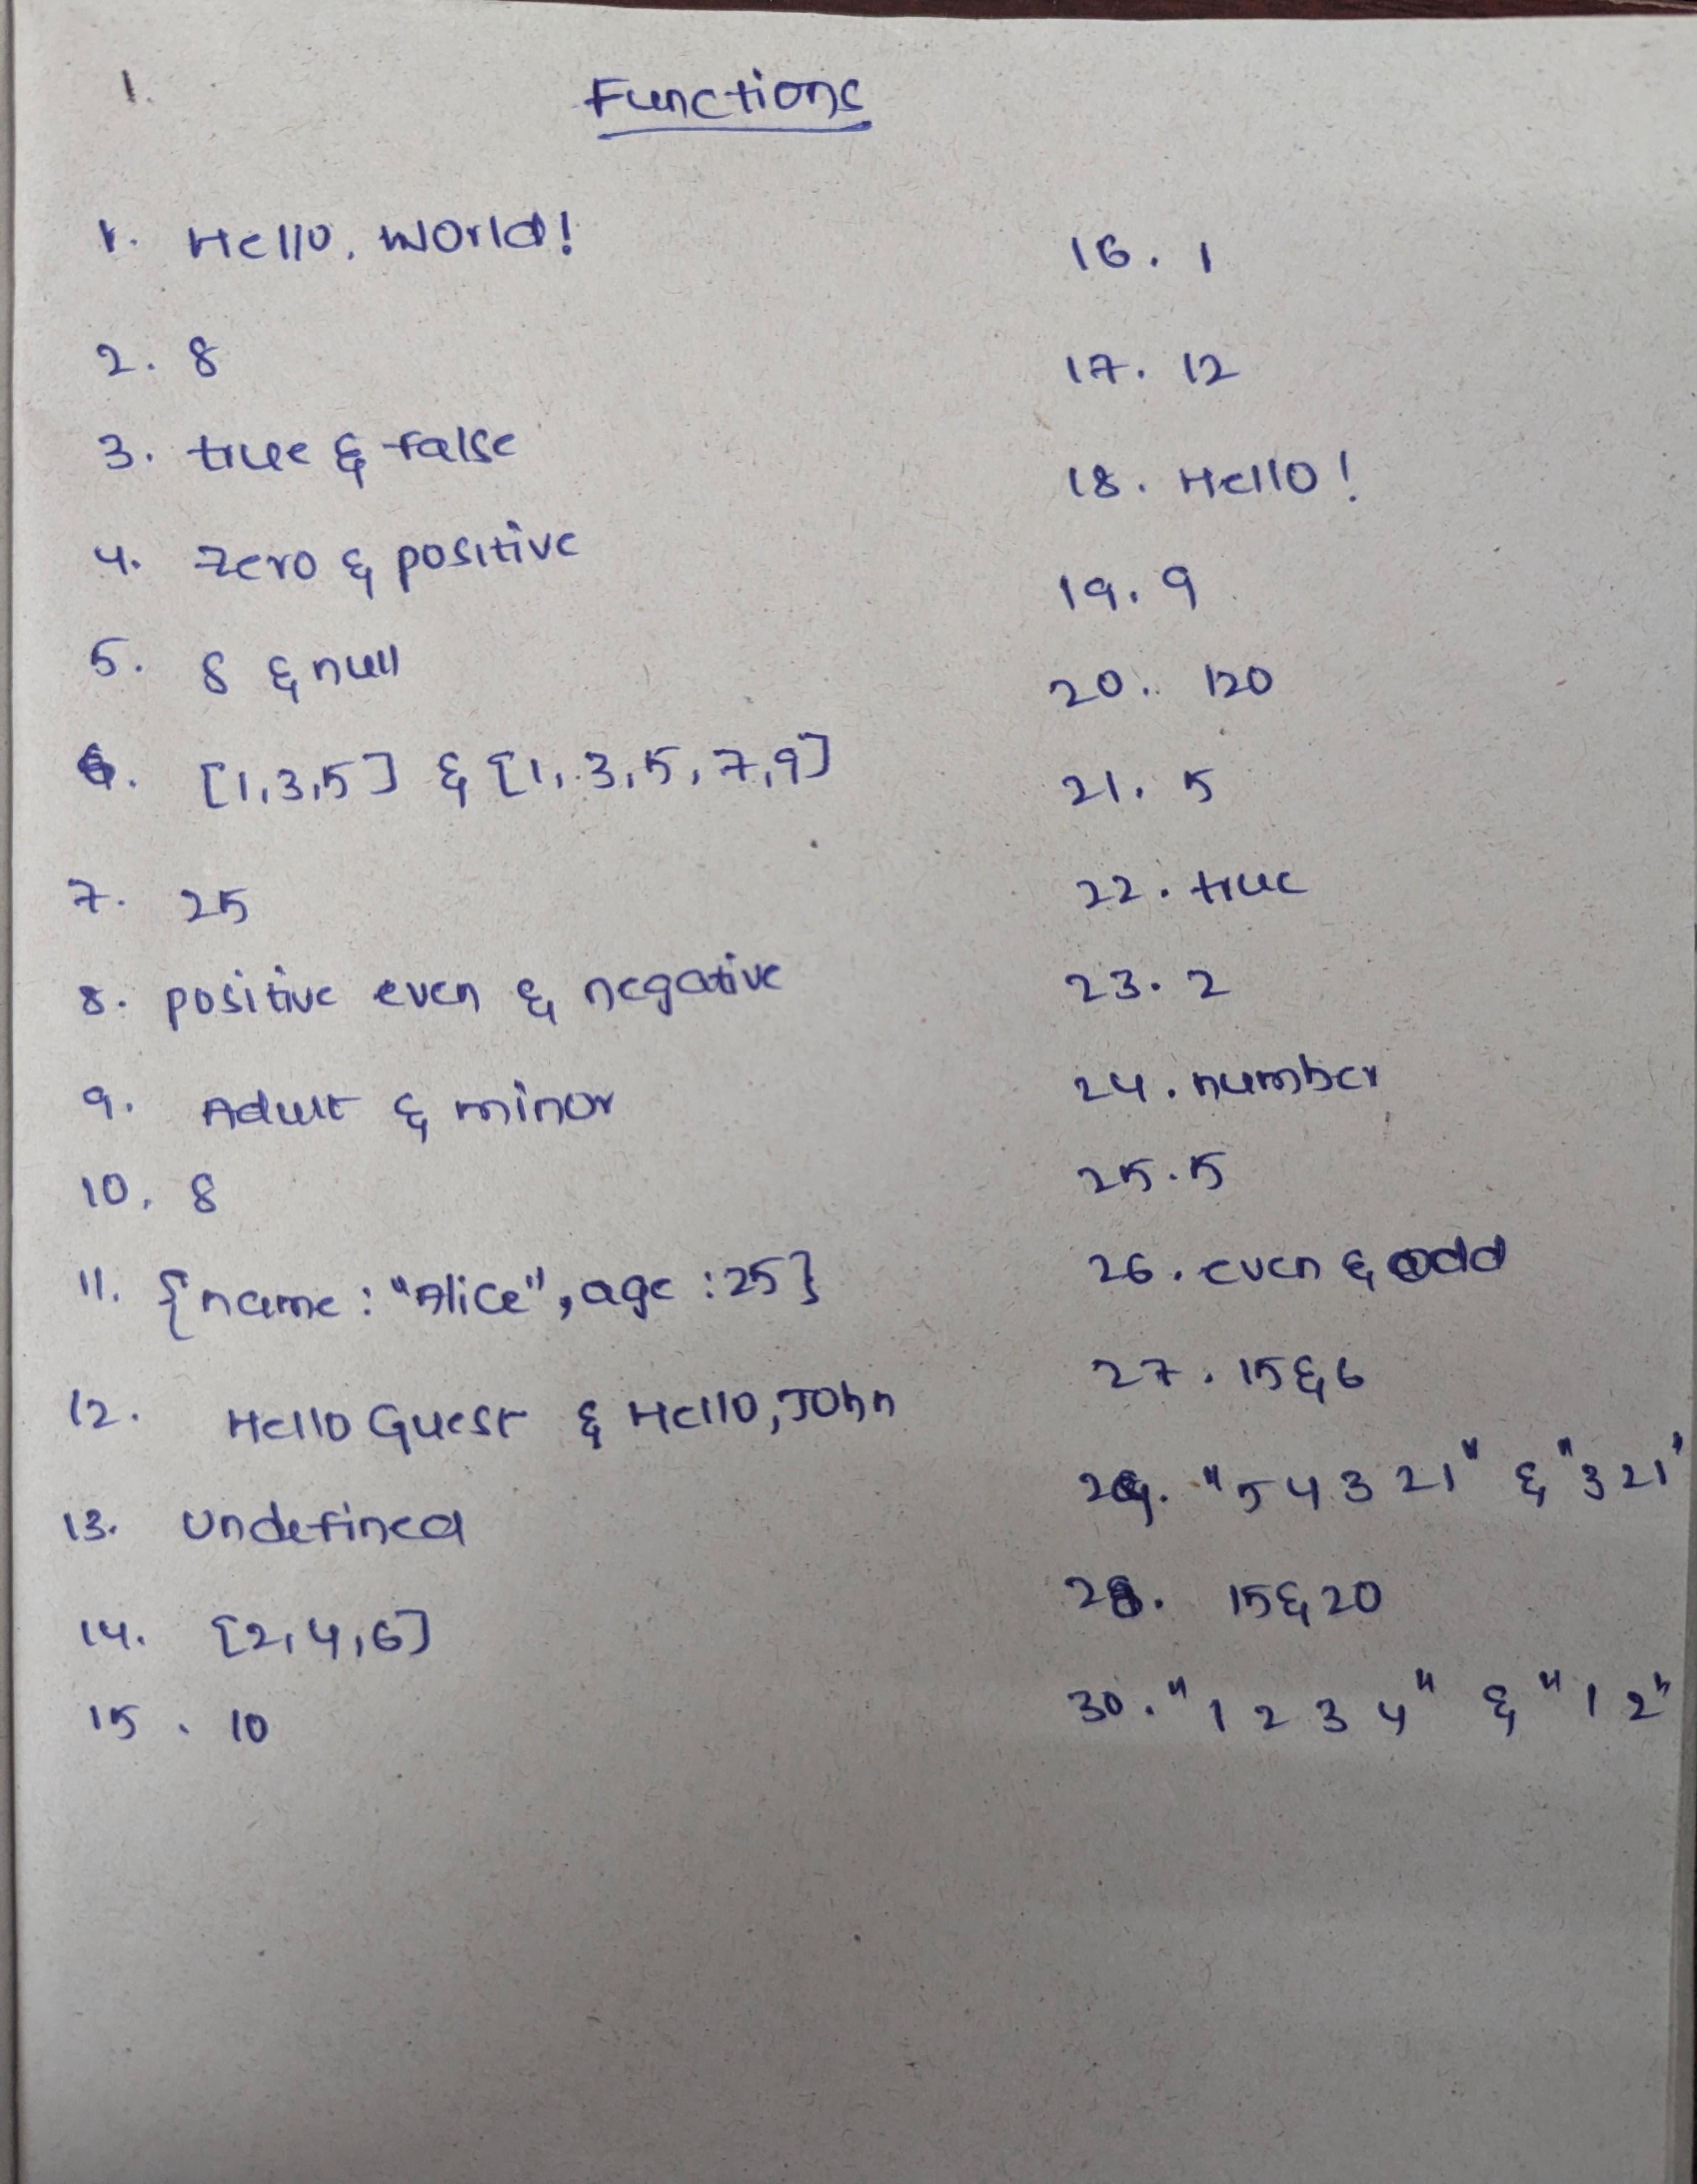 1.
Functions
1. Hello, World!
2. 8
3. true & false
4. zero & positive
5. 8 & null
6. [1,3,5] & [1,3,5,7,9]
7. 25
8. positive even & negative
9. Adult & minor
10. 8
11. {name : "Alice", age : 25}
12. Hello Guest & Hello, John
13. Undefined
14. [2,4,6]
15. 10
16. 1
17. 12
18. Hello!
19. 9
20. 120
21. 5
22. true
23. 2
24. number
25. 5
26. even & odd
27. 15 & 6
29. "5 4 3 2 1" & "3 2 1"
28. 15 & 20
30. "1 2 3 4" & "1 2"